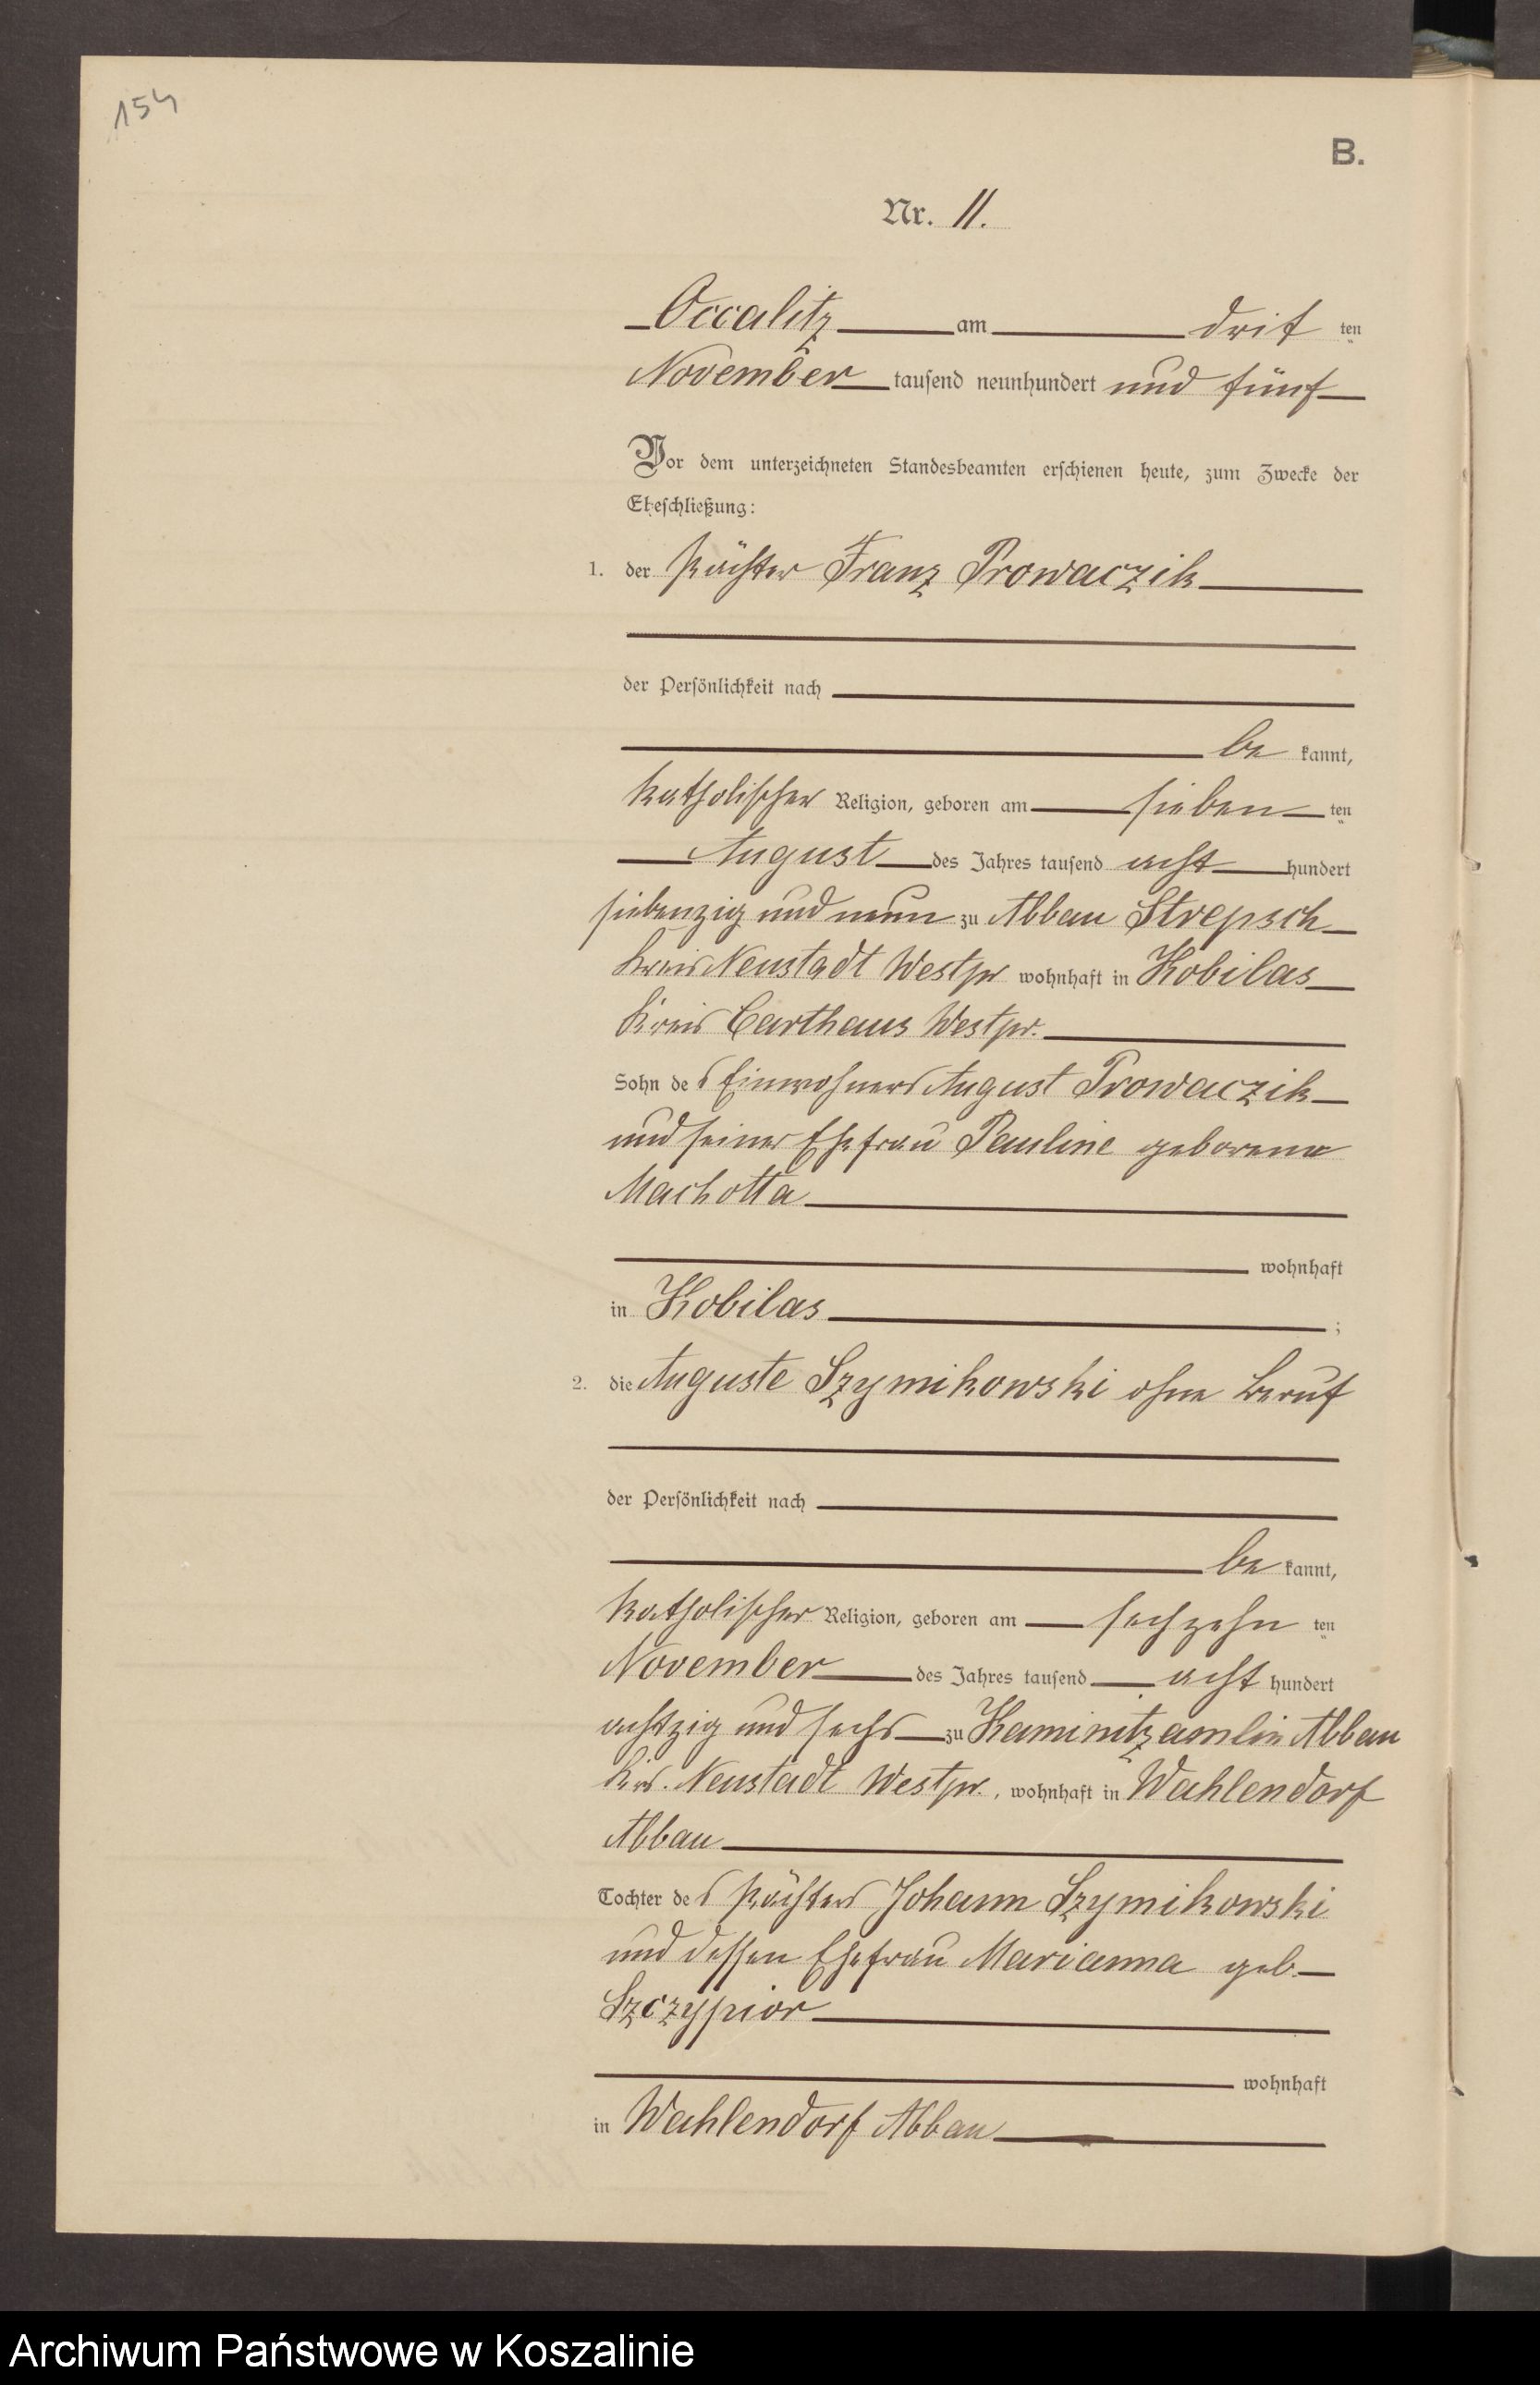 154
B.
Nr. 11.
Occalitz am drit ten
November tausend neunhundert und fünf
Vor dem unterzeichneten Standesbeamten erschienen heute, zum Zwecke der
Eheschließung:
1. der Pächter Franz Prowaczik
der Persönlichkeit nach
be kannt,
katholischer Religion, geboren am sieben ten
August des Jahres tausend acht hundert
siebenzig und neun zu Abbau Strepsch
Kreis Neustadt Westpr wohnhaft in Kobilas
Kreis Carthaus Westpr.
Sohn des Einwohners August Prowaczik
und seiner Ehefrau Pauline geborene
Machotta
wohnhaft
in Kobilas ;
2. die Auguste Szymikowski ohne Beruf
der Persönlichkeit nach
be kannt,
katholischer Religion, geboren am sechzehn ten
November des Jahres tausend acht hundert
achtzig und sechs zu Kaminitzamlin Abbau
Krs. Neustadt Westpr., wohnhaft in Wahlendorf
Abbau
Tochter des Pächters Johann Szymikowski
und dessen Ehefrau Marianna geb.
Szczypior
wohnhaft
in Wahlendorf Abbau
Archiwum Państwowe w Koszalinie